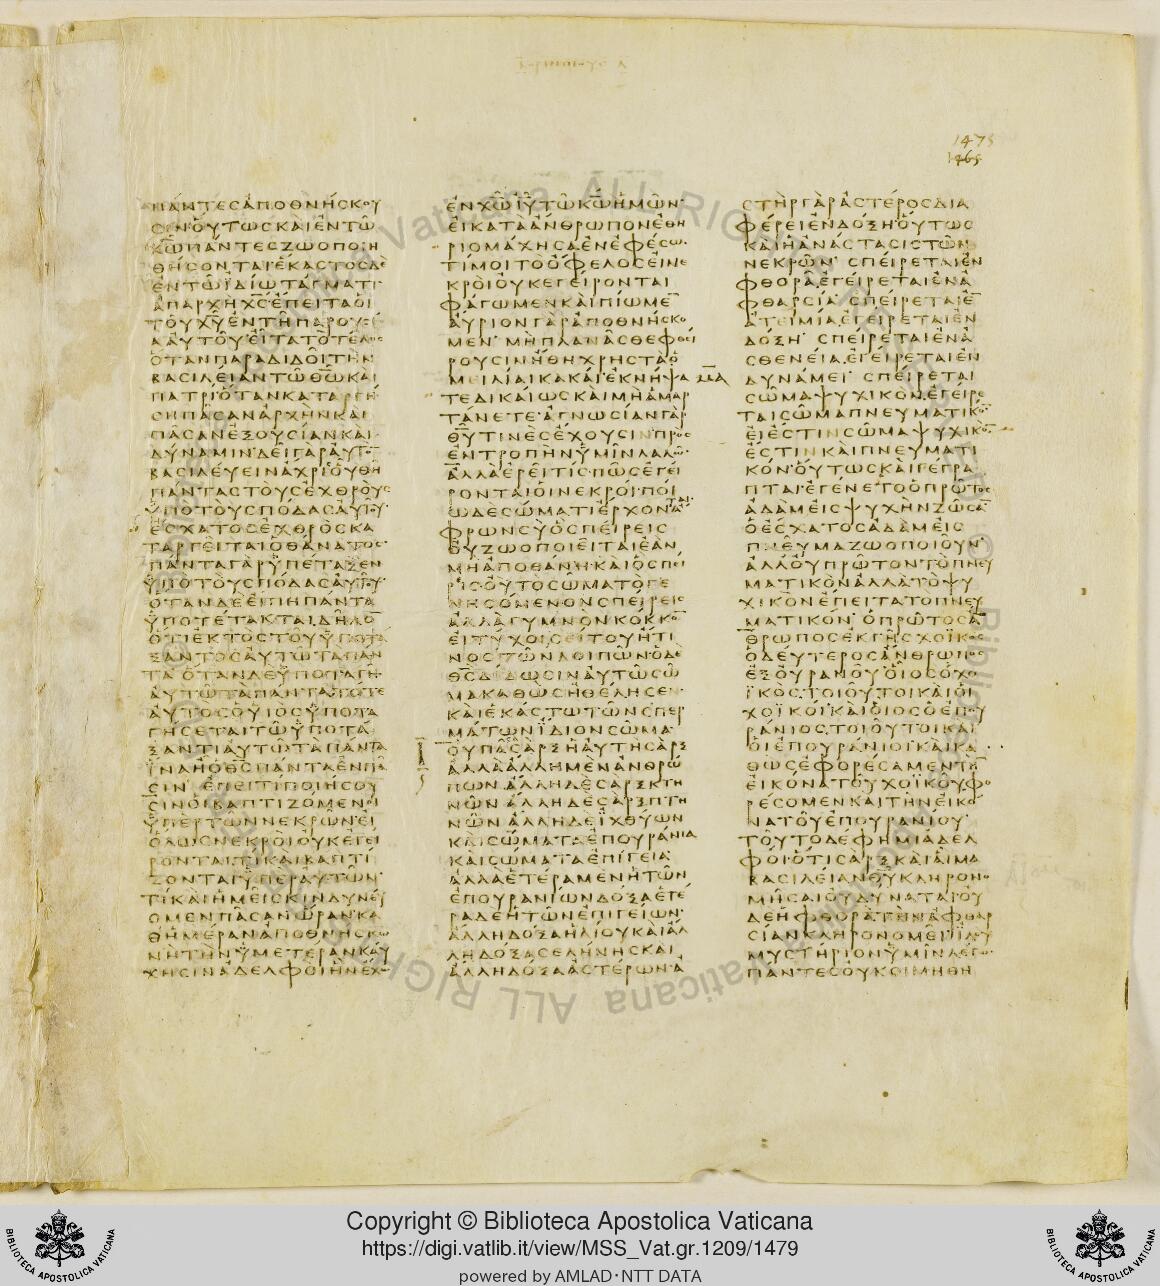 1475
1465
ΠΑΝΤΕCΑΠΟΘΝΗCΚΟΥ
CΙΝΟΥΤΩCΚΑΙΕΝΤΩ
ΧΩΠΑΝΤΕCΖΩΟΠΟΙΗ
ΘΗCΟΝΤΑΙΕΚΑCΤΟCΔΕ
ΕΝΤΩΙΔΙΩΤΑΓΜΑΤΙ
ΑΠΑΡΧΗΧCΕΠΕΙΤΑΟΙ
ΤΟΥΧΥΕΝΤΗΠΑΡΟΥCΙ
ΑΑΥΤΟΥΕΙΤΑΤΟΤΕΛΟC
ΟΤΑΝΠΑΡΑΔΙΔΟΙΤΗΝ
ΒΑCΙΛΕΙΑΝΤΩΘΩΚΑΙ
ΠΑΤΡΙΟΤΑΝΚΑΤΑΡΓΗ
CΗΠΑCΑΝΑΡΧΗΝΚΑΙ
ΠΑCΑΝΕΞΟΥCΙΑΝΚΑΙ
ΔΥΝΑΜΙΝΔΕΙΓΑΡΑΥΤΟ
ΒΑCΙΛΕΥΕΙΝΑΧΡΙΟΥΘΗ
ΠΑΝΤΑCΤΟΥCΕΧΘΡΟΥC
ΥΠΟΤΟΥCΠΟΔΑCΑΥΤΟΥ
ΕCΧΑΤΟCΕΧΘΡΟCΚΑ
ΤΑΡΓΕΙΤΑΙΟΘΑΝΑΤΟC
ΠΑΝΤΑΓΑΡΥΠΕΤΑΞΕΝ
ΥΠΟΤΟΥCΠΟΔΑCΑΥΤΟΥ
ΟΤΑΝΔΕΕΙΠΗΠΑΝΤΑ
ΥΠΟΤΕΤΑΚΤΑΙΔΗΛΟ
ΟΤΙΕΚΤΟCΤΟΥΥΠΟΤΑ
ΞΑΝΤΟCΑΥΤΩΤΑΠΑΝ
ΤΑΟΤΑΝΔΕΥΠΟΤΑΓΗ
ΑΥΤΩΤΑΠΑΝΤΑΤΟΤΕ
ΑΥΤΟCΟΥΙΟCΥΠΟΤΑ
ΓΗCΕΤΑΙΤΩΥΠΟΤΑ
ΞΑΝΤΙΑΥΤΩΤΑΠΑΝΤΑ
ΙΝΑΗΟΘCΠΑΝΤΑΕΝΠΑ
CΙΝΕΠΕΙΤΙΠΟΙΗCΟΥ
CΙΝΟΙΒΑΠΤΙΖΟΜΕΝΟΙ
ΥΠΕΡΤΩΝΝΕΚΡΩΝΕΙ
ΟΛΩCΝΕΚΡΟΙΟΥΚΕΓΕΙ
ΡΟΝΤΑΙΤΙΚΑΙΒΑΠΤΙ
ΖΟΝΤΑΙΥΠΕΡΑΥΤΩΝ
ΤΙΚΑΙΗΜΕΙCΚΙΝΔΥΝΕΥ
ΟΜΕΝΠΑCΑΝΩΡΑΝΚΑ
ΘΗΜΕΡΑΝΑΠΟΘΝΗCΚΩ
ΝΗΤΗΝΥΜΕΤΕΡΑΝΚΑΥ
ΧΗCΙΝΑΔΕΛΦΟΙΗΝΕΧΩ
ΕΝΧΩΙΥΤΩΚΩΗΜΩΝ
ΕΙΚΑΤΑΑΝΘΡΩΠΟΝΕΘΗ
ΡΙΟΜΑΧΗCΑΕΝΕΦΕCΩ
ΤΙΜΟΙΤΟΟΦΕΛΟCΕΙΝΕ
ΚΡΟΙΟΥΚΕΓΕΙΡΟΝΤΑΙ
ΦΑΓΩΜΕΝΚΑΙΠΙΩΜΕ
ΑΥΡΙΟΝΓΑΡΑΠΟΘΝΗCΚΟ
ΜΕΝΜΗΠΛΑΝΑCΘΕΦΘΕΙ
ΡΟΥCΙΝΗΘΗΧΡΗCΤΑΟ
ΜΕΙΛΙΑΙΚΑΚΑΙΕΚΝΗΨΑ
ΤΕΔΙΚΑΙΩCΚΑΙΜΗΑΜΑΡ
ΤΑΝΕΤΕΑΓΝΩCΙΑΝΓΑΡ
ΘΥΤΙΝΕCΕΧΟΥCΙΝΠΡΟC
ΕΝΤΡΟΠΗΝΥΜΙΝΛΑΛΩ
ΑΛΛΑΕΡΕΙΤΙCΠΩCΕΓΕΙ
ΡΟΝΤΑΙΟΙΝΕΚΡΟΙΠΟΙ
ΩΔΕCΩΜΑΤΙΕΡΧΟΝΤΑΙ
ΦΡΩΝCΥΟCΠΕΙΡΕΙC
ΟΥΖΩΟΠΟΙΕΙΤΑΙΕΑΝ
ΜΗΑΠΟΘΑΝΗΚΑΙΟCΠΕΙ
ΡΕΙCΟΥΤΟCΩΜΑΤΟΓΕ
ΝΗCΟΜΕΝΟΝCΠΕΙΡΕΙC
ΑΛΛΑΓΥΜΝΟΝΚΟΚΚΟ
ΕΙΤΥΧΟΙCΕΙΤΟΥΗΤΙ
ΝΟCΤΩΝΛΟΙΠΩΝΟΔΕ
ΘCΔΙΔΩCΙΝΑΥΤΩCΩ
ΜΑΚΑΘΩCΗΘΕΛΗCΕΝ
ΚΑΙΕΚΑCΤΩΤΩΝCΠΕΡ
ΜΑΤΩΝΙΔΙΟΝCΩΜΑ
ΟΥΠΑCΑCΑΡΞΗΑΥΤΗCΑΡΞ
ΑΛΛΑΑΛΛΗΜΕΝΑΝΘΡΩ
ΠΩΝΑΛΛΗΔΕCΑΡΞΚΤΗ
ΝΩΝΑΛΛΗΔΕCΑΡΞΠΤΗ
ΝΩΝΑΛΛΗΔΕΙΧΘΥΩΝ
ΚΑΙCΩΜΑΤΑΕΠΟΥΡΑΝΙΑ
ΚΑΙCΩΜΑΤΑΕΠΙΓΕΙΑ
ΑΛΛΑΕΤΕΡΑΜΕΝΗΤΩΝ
ΕΠΟΥΡΑΝΙΩΝΔΟΞΑΕΤΕ
ΡΑΔΕΗΤΩΝΕΠΙΓΕΙΩΝ
ΑΛΛΗΔΟΞΑΗΛΙΟΥΚΑΙΑΛ
ΛΗΔΟΞΑCΕΛΗΝΗCΚΑΙ
ΑΛΛΗΔΟΞΑΑCΤΕΡΩΝΑ
CΤΗΡΓΑΡΑCΤΕΡΟCΔΙΑ
ΦΕΡΕΙΕΝΔΟΞΗΟΥΤΩC
ΚΑΙΗΑΝΑCΤΑCΙCΤΩΝ
ΝΕΚΡΩΝCΠΕΙΡΕΤΑΙΕΝ
ΦΘΟΡΑΕΓΕΙΡΕΤΑΙΕΝΑ
ΦΘΑΡCΙΑCΠΕΙΡΕΤΑΙΕ
ΑΤΕΙΜΙΑΕΓΕΙΡΕΤΑΙΕΝ
ΔΟΞΗCΠΕΙΡΕΤΑΙΕΝΑ
CΘΕΝΕΙΑΕΓΕΙΡΕΤΑΙΕΝ
ΔΥΝΑΜΕΙCΠΕΙΡΕΤΑΙ
CΩΜΑΨΥΧΙΚΟΝΕΓΕΙΡΕ
ΤΑΙCΩΜΑΠΝΕΥΜΑΤΙΚΟ
ΕΙΕCΤΙΝCΩΜΑΨΥΧΙΚΟ
ΕCΤΙΝΚΑΙΠΝΕΥΜΑΤΙ
ΚΟΝΟΥΤΩCΚΑΙΓΕΓΡΑ
ΠΤΑΙΕΓΕΝΕΤΟΟΠΡΩΤΟC
ΑΔΑΜΕΙCΨΥΧΗΝΖΩCΑ
ΟΕCΧΑΤΟCΑΔΑΜΕΙC
ΠΝΕΥΜΑΖΩΟΠΟΙΟΥΝ
ΑΛΛΟΥΠΡΩΤΟΝΤΟΠΝΕΥ
ΜΑΤΙΚΟΝΑΛΛΑΤΟΨΥ
ΧΙΚΟΝΕΠΕΙΤΑΤΟΠΝΕΥ
ΜΑΤΙΚΟΝΟΠΡΩΤΟCΑ
ΘΡΩΠΟCΕΚΓΗCΧΟΙΚΟC
ΟΔΕΥΤΕΡΟCΑΝΘΡΩΠΟC
ΕΞΟΥΡΑΝΟΥΟΙΟCΟΧΟ
ΙΚΟCΤΟΙΟΥΤΟΙΚΑΙΟΙ
ΧΟΙΚΟΙΚΑΙΟΙΟCΟΕΠΟΥ
ΡΑΝΙΟCΤΟΙΟΥΤΟΙΚΑΙ
ΟΙΕΠΟΥΡΑΝΙΟΙΚΑΙΚΑ
ΘΩCΕΦΟΡΕCΑΜΕΝΤΗ
ΕΙΚΟΝΑΤΟΥΧΟΙΚΟΥΦΟ
ΡΕCΟΜΕΝΚΑΙΤΗΝΕΙΚΟ
ΝΑΤΟΥΕΠΟΥΡΑΝΙΟΥ
ΤΟΥΤΟΔΕΦΗΜΙΑΔΕΛ
ΦΟΙΟΤΙCΑΡΞΚΑΙΑΙΜΑ
ΒΑCΙΛΕΙΑΝΘΥΚΛΗΡΟΝΟ
ΜΗCΑΙΟΥΔΥΝΑΤΑΙΟΥ
ΔΕΗΦΘΟΡΑΤΗΝΑΦΘΑΡ
CΙΑΝΚΛΗΡΟΝΟΜΕΙΙΔΟΥ
ΜΥCΤΗΡΙΟΝΥΜΙΝΛΕΓΩ
ΠΑΝΤΕCΟΥΚΟΙΜΗΘΗ
Copyright © Biblioteca Apostolica Vaticana
https://digi.vatlib.it/view/MSS_Vat.gr.1209/1479
powered by AMLAD·NTT DATA